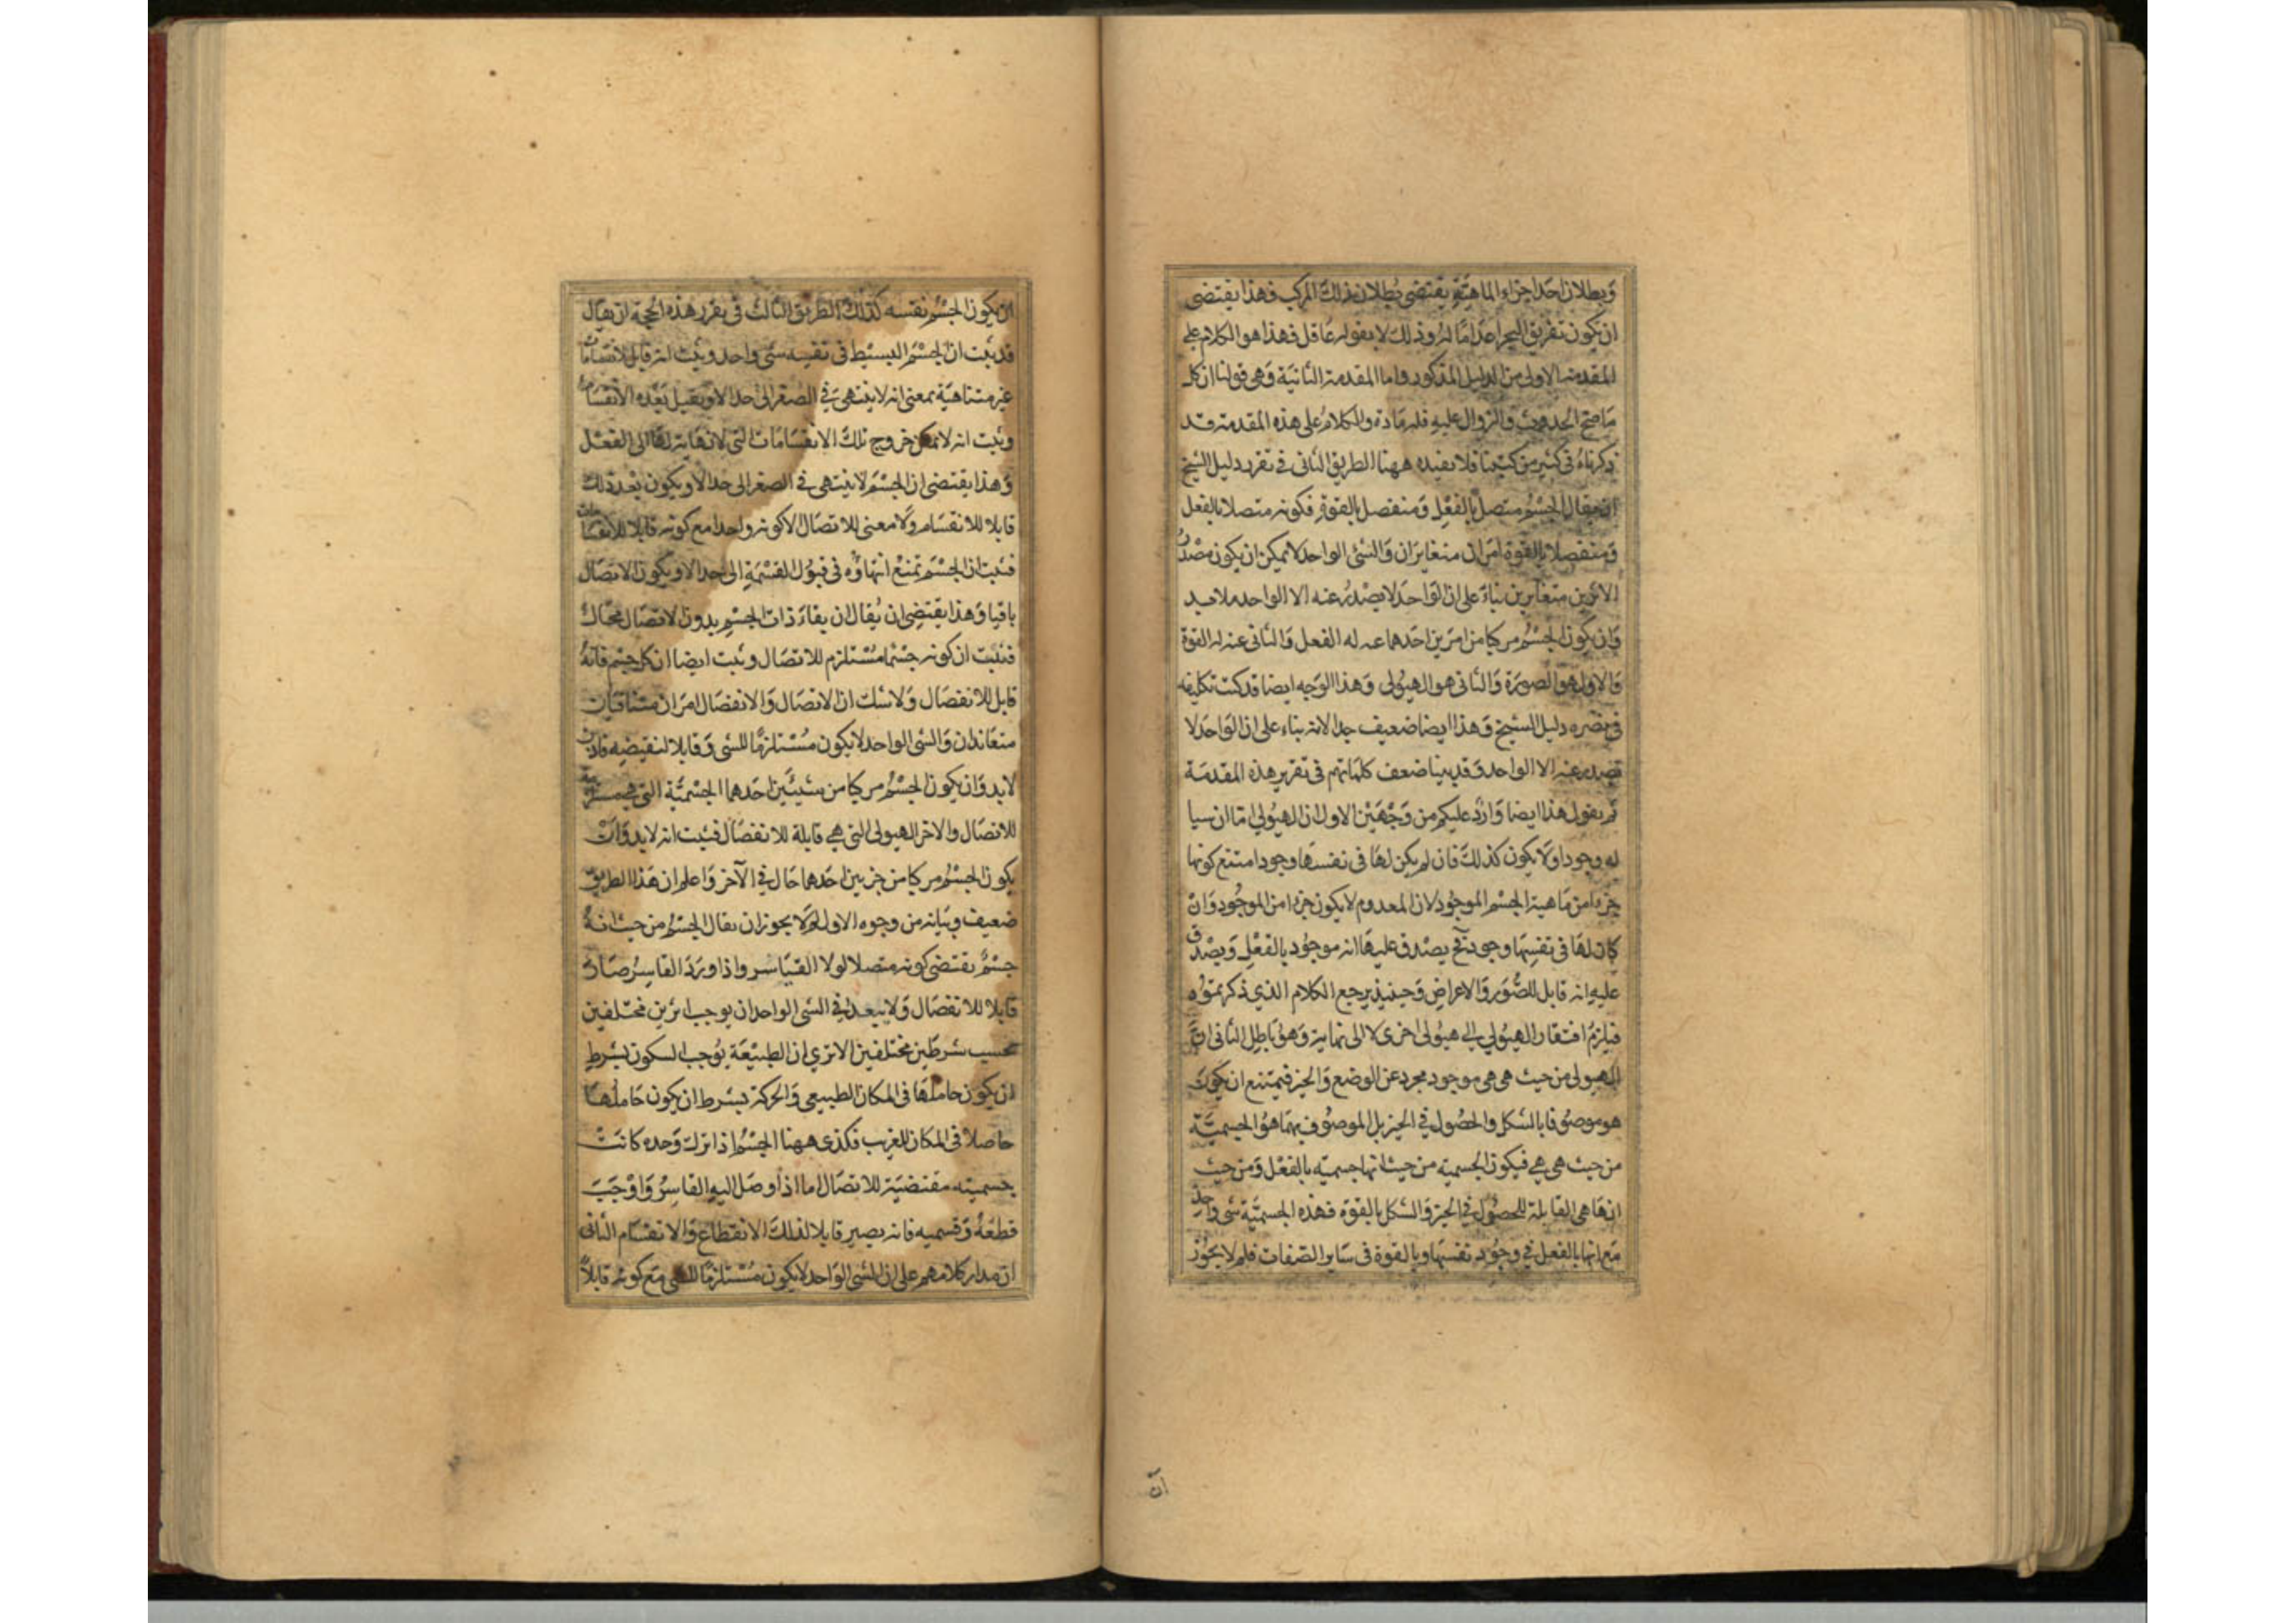 وبطلان احد اجزاء الماهية يقتضى بطلان ذلك المركب فهذا يقتضى
ان يكون تفريق البحر اعداما له وذلك لا يقوله عاقل فهذا هو الكلام على
المقدمة الاولى من الدليل المذكور واما المقدمة الثانية وهى قولنا ان كل
ما صح الحدوث والزوال عليه فله مادة والكلام على هذه المقدمة قد
ذكرناه فى كثير من كتبنا فلا نعيده ههنا الطريق الثانى فى تقرير دليل الشيخ
ان يقال الجسم متصل بالفعل ومنفصل بالقوة فكونه متصلا بالفعل
ومنفصلا بالقوة امران متغايران والشى الواحد لا يمكن ان يكون مصدر
الاثرين متغايرين بناء على ان الواحد لا يصدر عنه الا الواحد فلا بد
وان يكون الجسم مركبا من امرين احدهما عنه له الفعل والثانى عنه له القوة
والاول هو الصورة والثانى هو الهيولى وهذا الوجه ايضا قد كنت تكلفته
فى نصره دليل الشيخ وهذا ايضا ضعيف جدا لانه بناء على ان الواحد لا
يصدر عنه الا الواحد وقد بينا ضعف كلماتهم فى تقرير هذه المقدمة
ثم يقول هذا ايضا وارد عليكم من وجهين الاول ان الهيولى اما ان
له وجود او لا يكون كذلك فان لم يكن لها فى نفسها وجود امتنع كونها
جزءا من ماهية الجسم الموجود لان المعدوم لا يكون جزءا من الموجود وان
كان لها فى نفسها وجود فح يصدق عليها انه موجود بالفعل ويصدق
عليه انه قابل للصور والاعراض وحينئذ يرجع الكلام الذى ذكرتموه
فيلزم افتقار الهيولى الى هيولى اخرى لا الى نهاية وهو باطل الثانى ان
الهيولى من حيث هى هى موجود مجرد عن الوضع والحيز فيمتنع ان يكون
هو موصوفا بالشكل والحصول فى الحيز بل الموصوف بهما هو الجسمية
من حيث هى هى فيكون الجسمية من حيث انها جسمية بالفعل ومن حيث
انها هى القابلة للحصول فى الحيز والشكل بالقوة فهذه الجسمية شى واحد
مع انها بالفعل فى وجود نفسها وبالقوة فى ساير الصفات فلم لا يجوز
ان
ان يكون الجسم نفسه كذلك الطريق الثالث فى تقرير هذه الحجة ان يقال
قد ثبت ان الجسم البسيط فى نفسه شى واحد وثبت انه قابل لانقسامات
غير متناهية بمعنى انه لا ينتهى فى الصغر الى حد الا ويقبل بعده الانقسام
وثبت انه لا يمكن خروج تلك الانقسامات التى لا نهاية لها الى الفعل
وهذا يقتضى ان الجسم لا ينتهى فى الصغر الى حد الا ويكون بعد ذلك
قابلا للانقسام ولا معنى للاتصال الا كونه واحدا مع كونه قابلا للانقسامات
فثبت ان الجسم يمتنع انتهاؤه فى قبول القسمة الى حد الا ويكون الاتصال
باقيا وهذا يقتضى ان يقال ان بقاء ذات الجسم بدون الاتصال محال
فثبت ان كونه جسما مستلزم للاتصال وثبت ايضا ان كل جسم فانه
قابل للانفصال ولا شك ان الاتصال والانفصال امران متنافيان
متعاندان والشى الواحد لا يكون مستلزما للشى وقابلا لنقيضه فاذن
لابد وان يكون الجسم مركبا من شيئين احدهما الجسمية التى هى مستلزمة
للاتصال والاخر الهيولى التى هى قابلة للانفصال فثبت انه لابد وان
يكون الجسم مركبا من جزئين احدهما حال فى الآخر واعلم ان هذا الطريق
ضعيف وبيانه من وجوه الاول لم لا يجوز ان يقال الجسم من حيث انه
جسم يقتضى كونه متصلا لولا القاسر واذا ورد القاسر صار
قابلا للانفصال ولا يبعد فى الشى الواحد ان يوجب اثرين مختلفين
بحسب شرطين مختلفين الا ترى ان الطبيعة يوجب السكون بشرط
ان يكون حاملها فى المكان الطبيعى والحركة بشرط ان يكون حاملها
حاصلا فى المكان الغريب فكذى ههنا الجسم اذا ترك وحده كانت
جسميته مقتضية للاتصال اما اذا وصل اليه القاسر واوجب
قطعه وقسميه فانه يصير قابلا لذلك الانقطاع والانقسام الثانى
ان مدار كلامهم على ان الشى الواحد لا يكون مستلزما للشى مع كونه قابلا